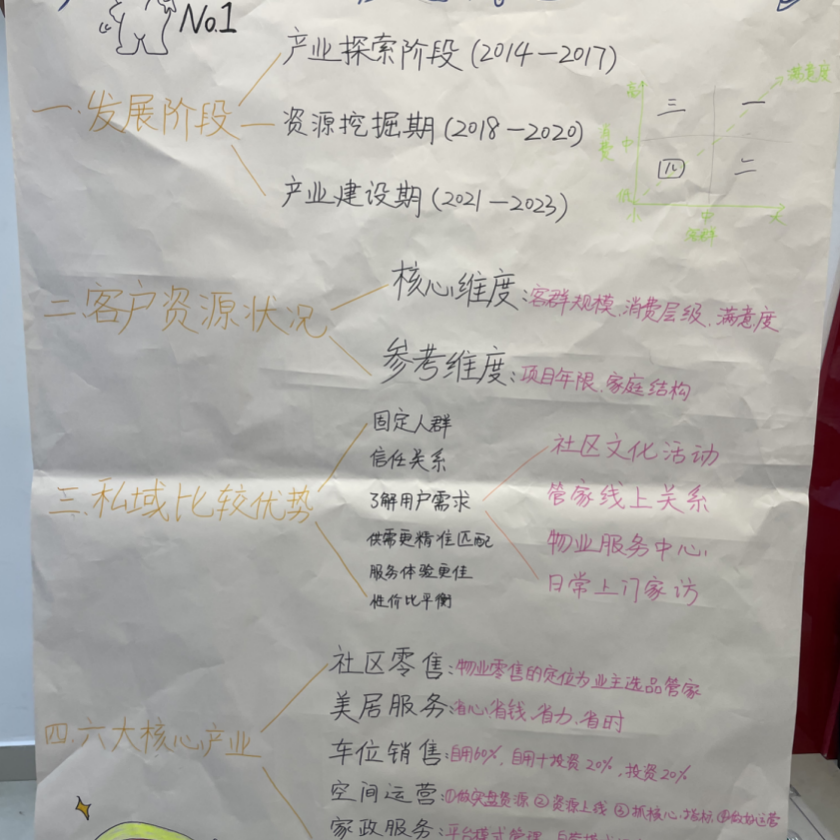 No.1
产业探索阶段(2014—2017)
一.发展阶段
资源挖掘期(2018—2020)
产业建设期(2021—2023)
满意度
高
三
一
消费
中
四
二
低
小
中
大
客群
二.客户资源状况
核心维度:客群规模、消费层级、满意度
参考维度:项目年限、家庭结构
三.私域比较优势
固定人群
信任关系
了解用户需求
供需更精准匹配
服务体验更佳
性价比平衡
社区文化活动
管家线上关系
物业服务中心
日常上门家访
四.六大核心产业
社区零售:物业零售的定位为业主选品管家
美居服务:省心、省钱、省力、省时
车位销售:自用60%,自用+投资20%,投资20%
空间运营:①做实盘资源②资源上线③抓核心指标④做好运营
家政服务:平台模式管理